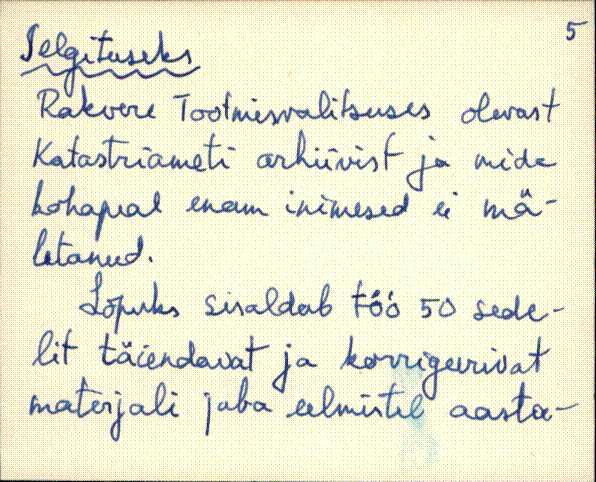 5
Selgituseks
Rakvere Tootmisvalitsuses olevast
Katastriameti arhiivist ja mida
kohapeal enam inimesed ei mä-
letanud.
Lõpuks sisaldab töö 50 sede-
lit täiendavat ja korrigeerivat
materjali juba eelmistel aasta-